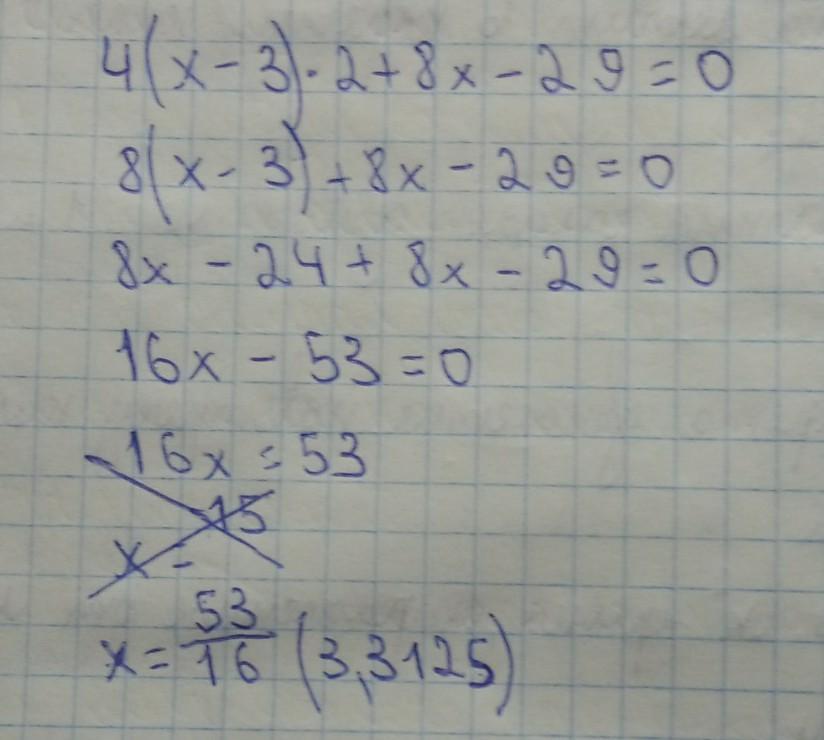 4(x-3)·2+8x-29=0
8(x-3)+8x-29=0
8x-24+8x-29=0
16x-53=0
16x=53
15
x=
53
x=— (3,3125)
16